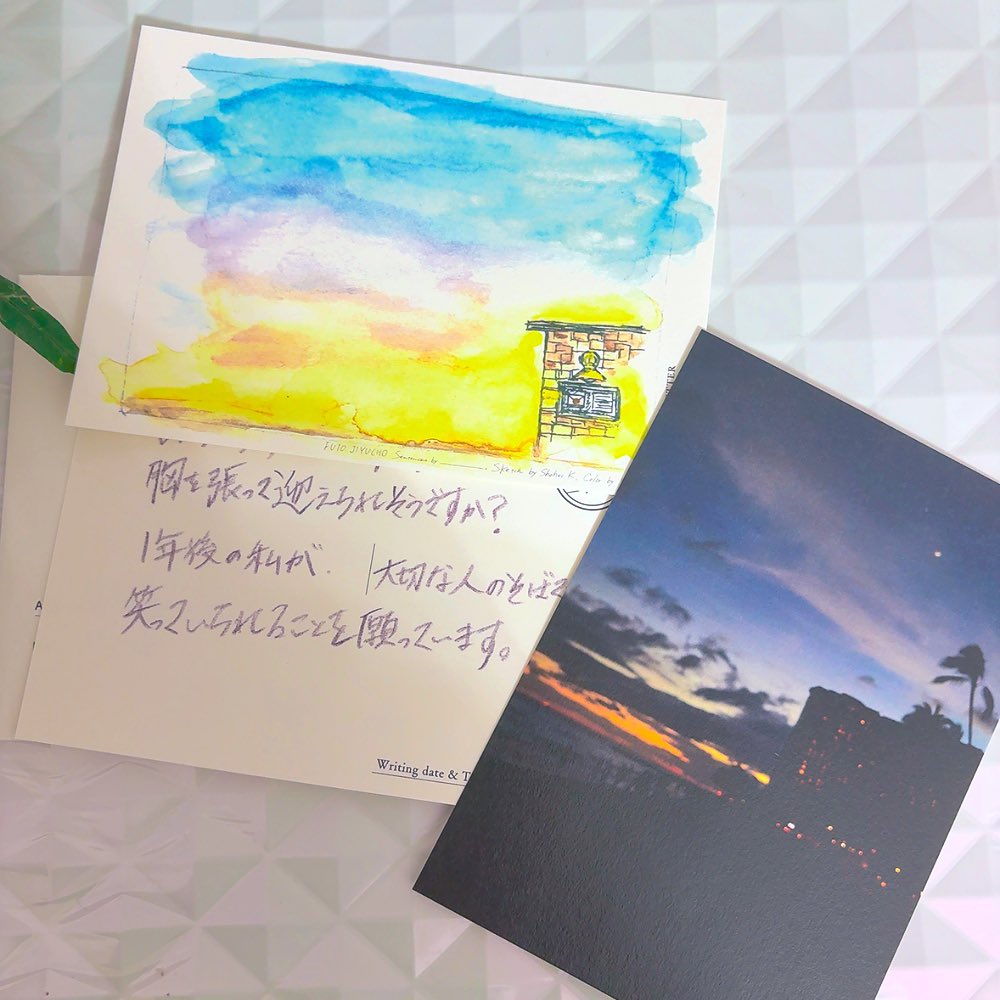 FUTO JIYUCHO Sentences by ________. Sketch by Shohei K. Color by
TTER
胸を張って迎えられそうですか?
1年後の私が、大切な人のそばで
笑っていられることを願っています。
Writing date & T